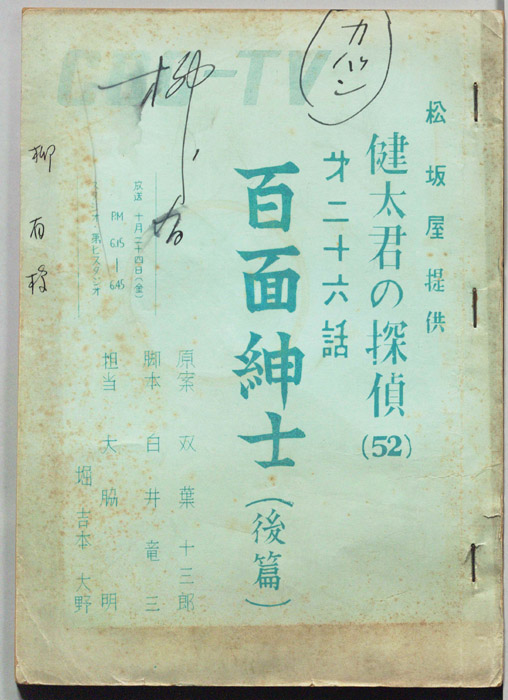 松坂屋提供
健太君の探偵(52)
才二十六話
百面紳士(後篇)
原案 双葉十三郎
脚本 白井竜三
担当 大脇明
堀 吉本 大野
放送 十月二十四日(金)
PM 6.15 — 6.45
スタジオ・第七スタジオ
CBC-TV
柳有